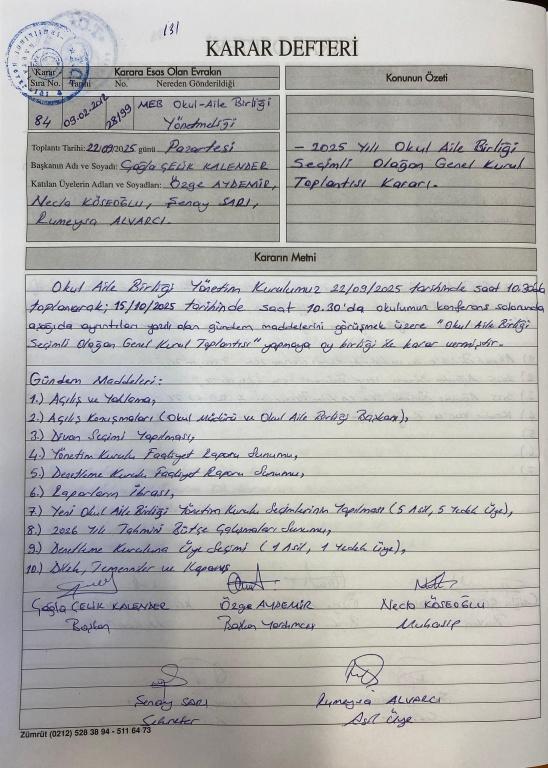 131
KARAR DEFTERİ
Karar Karara Esas Olan Evrakın
Sıra No. Tarihi No. Nereden Gönderildiği
Konunun Özeti
84 09.02.2012 28199 MEB Okul-Aile Birliği
Yönetmeliği
Toplantı Tarihi: 22/09/2025 günü Pazartesi
Başkanın Adı ve Soyadı: Çağla ÇELİK KALENDER
Katılan Üyelerin Adları ve Soyadları: Özge AYDEMİR,
Necla KÖSEOĞLU, Şenay SARI,
Rumeysa ALVARCI.
- 2025 Yılı Okul Aile Birliği
Seçimli Olağan Genel Kurul
Toplantısı Kararı.
Kararın Metni
Okul Aile Birliği Yönetim Kurulumuz 22/09/2025 tarihinde saat 10.30'da
toplanarak; 15/10/2025 tarihinde saat 10.30'da okulumun konferans salonunda
aşağıda ayrıntıları yazılı olan gündem maddelerini görüşmek üzere "Okul Aile Birliği
Seçimli Olağan Genel Kurul Toplantısı" yapmaya oy birliği ile karar vermiştir.
Gündem Maddeleri:
1.) Açılış ve Yoklama,
2.) Açılış Konuşmaları (Okul Müdürü ve Okul Aile Birliği Başkanı),
3.) Divan Seçimi Yapılması,
4.) Yönetim Kurulu Faaliyet Raporu Sunumu,
5.) Denetleme Kurulu Faaliyet Raporu Sunumu,
6.) Raporların İbrası,
7.) Yeni Okul Aile Birliği Yönetim Kurulu Seçimlerinin Yapılması (5 Asil, 5 Yedek Üye),
8.) 2026 Yılı Tahmini Bütçe Çalışmaları Sunumu,
9.) Denetleme Kuruluna Üye Seçimi (1 Asil, 1 Yedek Üye),
10.) Dilek, Temenniler ve Kapanış
Çağla ÇELİK KALENDER Özge AYDEMİR Necla KÖSEOĞLU
Başkan Başkan Yardımcısı Muhasip
Şenay SARI Rumeysa ALVARCI
Sekreter Asil Üye
Zümrüt (0212) 528 38 94 - 511 64 73